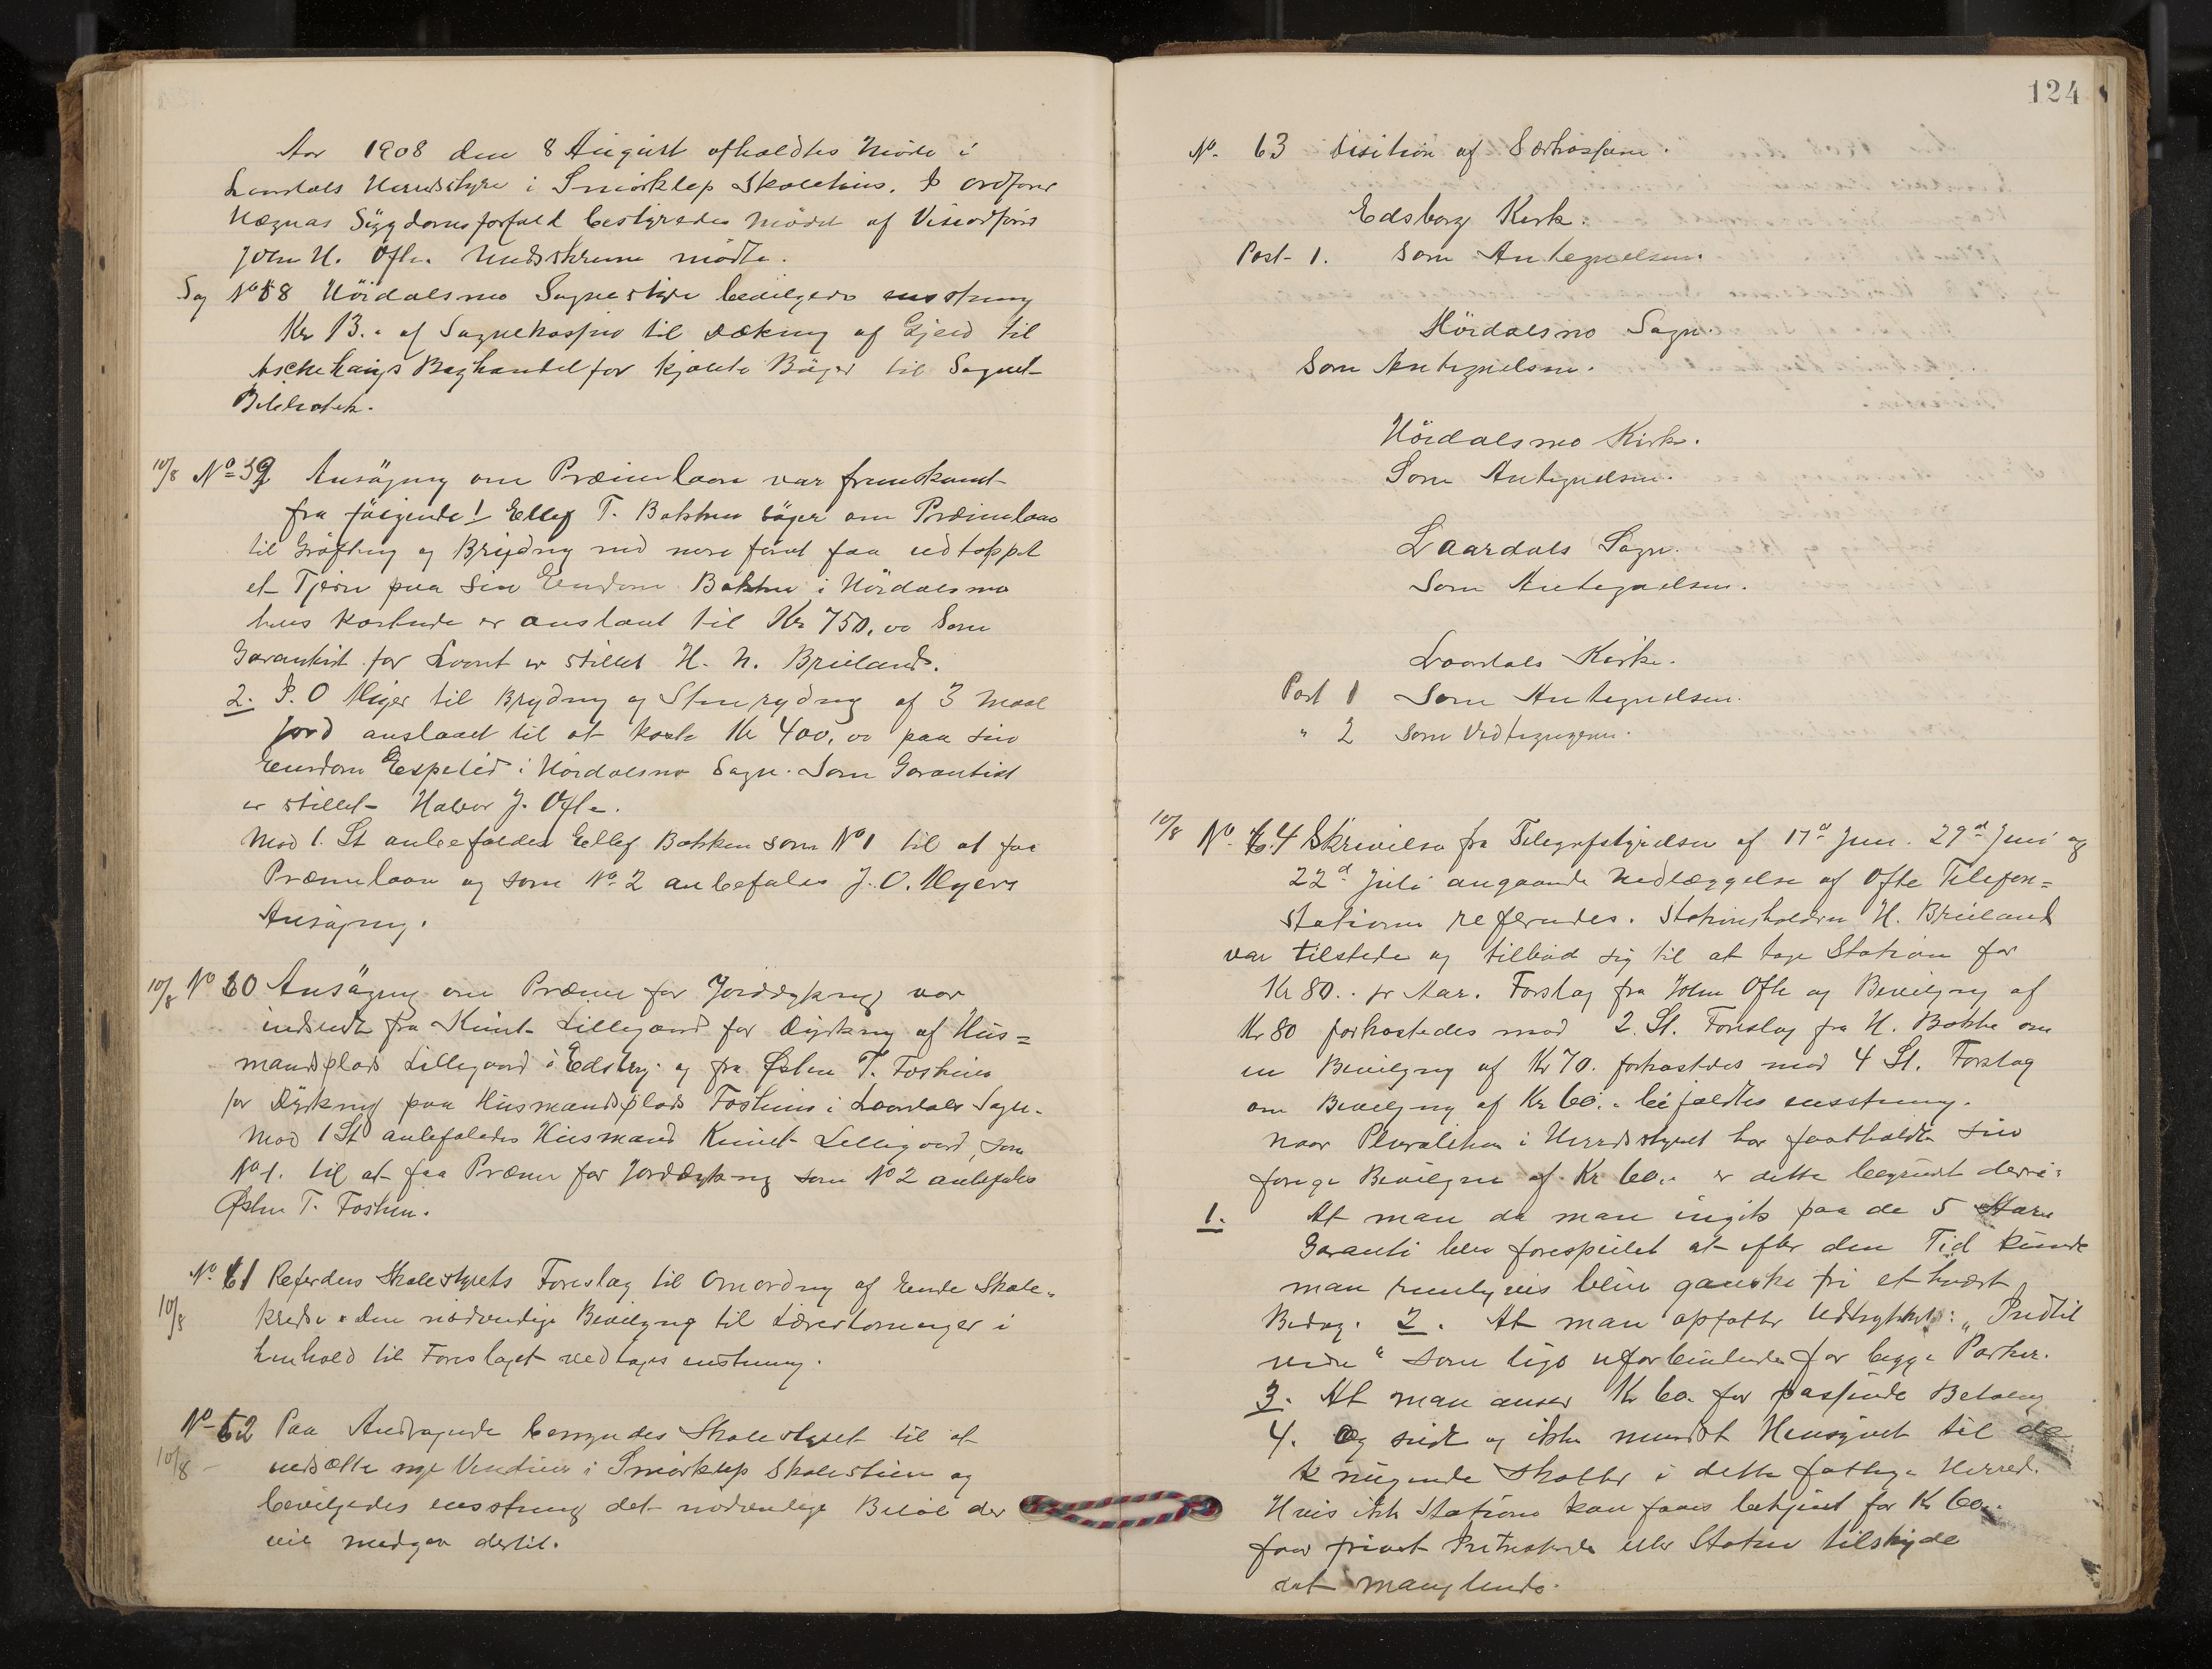 Aar 1908 den 8 August afholdtes Møde i
Laardals Herredstyre i Smørklep Skolehus. P. ordfører
Høgnas Sygdomsforfald bestyredes Mødet af Viseordfører
John H. Ofte. Medskrevne mødte.
Sag No 58 Høidalsmo Sognestyre bevilgede enstemig
Kr 13.- af Sognekassen til Dækning af Gjeld til
Aschehaugs Boghandel for kjøbte Bøger til Sognets
Bibliotek.
10/8 No 59 Ansøgning om Præmielaan var fremkommet
fra følgende! Ellef T. Bakken søger om Præmielaan
til Grøftning og Brydning ved mere foruden faa udtappet
et Tjern paa sin Eiendom Bakken i Høidalsmo
hvis Kostende er anslaaet til Kr 750,00 Som
Garantist for Laanet er stillet H. N. Brieland.
2. P. O Myer til Brydning og Stenrydning af 3 Maal
Jord anslaaet til at koste Kr 400,00 paa sin
Eiendom Espelid i Høidalsmo Sogn. Som Garantist
er stillet Halvor J. Ofte.
Mod 1. St anbefaldes Ellef Bakken som No 1 til at faa
Præmielaan og som No 2 anbefales J. O. Myers
Ansøgning.
10/8 No 60 Ansøgning om Præmie for Jorddyrkning var
indsendt fra Knut Lillegaard for Dyrkning af Hus=
mandsplads Lillegaard i Edsborg og fra Østen T. Foshein
for Dyrkning paa Husmandsplads Foshein i Laardals Sogn.
Mod 1 St anbefaledes Husmand Knut Lillegaard, som
No 1. til at faa Præmie for Jorddyrkning som No 2 anbefales
Østen T. Foshein.
No 61 Referedes Skolestyrets Forslag til Omordning af Skole-
10/8 kredse. Den nødvendige Bevilgning til Lærerlønninger i
henhold til Forslaget vedtages enstemig.
No 62 Paa Andragende bemyndes Skolestyret til at
10/8 indsætte nye Vinduer i Smørklep Skolestue og
bevilgedes enstemig det nødvendige Beløb der
vil medgaa dertil.
124
No. 63 Desition af Særkassene.
Edsborg Kirk.
Post 1. Som Antegnelsen.
Høidalsmo Sogn.
Som Antegnelsen.
Høidalsmo Kirke.
Som Antegnelsen.
Laardals Sogn.
Som Antegnelsen.
Laardals Kirke.
Post 1 Som Antegnelsen.
" 2 Som Vedtegningen.
10/8 No. 64 Skrivelse fra Telegrafstyrelsen af 17d Juni. 29d Juni og
22d Juli angaaende Nedlæggelse af Ofte Telefon=
stationen referedes. Stationsholderen H. Brieland
var tilstede og tilbød sig til at tage Station for
Kr 80.- pr Aar. Forslag fra John Ofte og Bevilgning af
Kr 80 forkastedes mod 2 St. Forslag fra H. Bakke om
en Bevilgning af Kr 70. forkastedes mod 4 St. Forslag
om Bevilgning af Kr 60.- bifaldtes enstemig.
Naar Pluraliteten i Herredsstyret har fastholdt sin
forige Bevilgning af Kr 60.- er dette begrundt deri:
1. At man da man ingik paa de 5 Aars
Garanti blev forespeilet at efter den Tid kunde
man rimeligvis bliv ganske fri ethvert
Bidrag. 2. At man opfatter Udtrykket: „Indtil
videre" som lige uforbindende for begge Parter.
3. At man anser Kr 60. for passende Betaling
4. Og sidst og ikke mindst Hensynet til de
knugende Skatter i dette fattige Herred.
Hvis ikke Stationen kan faaes betjent for Kr 60.-
faar privat Interesserede eller Staten tilskyde
det manglende.